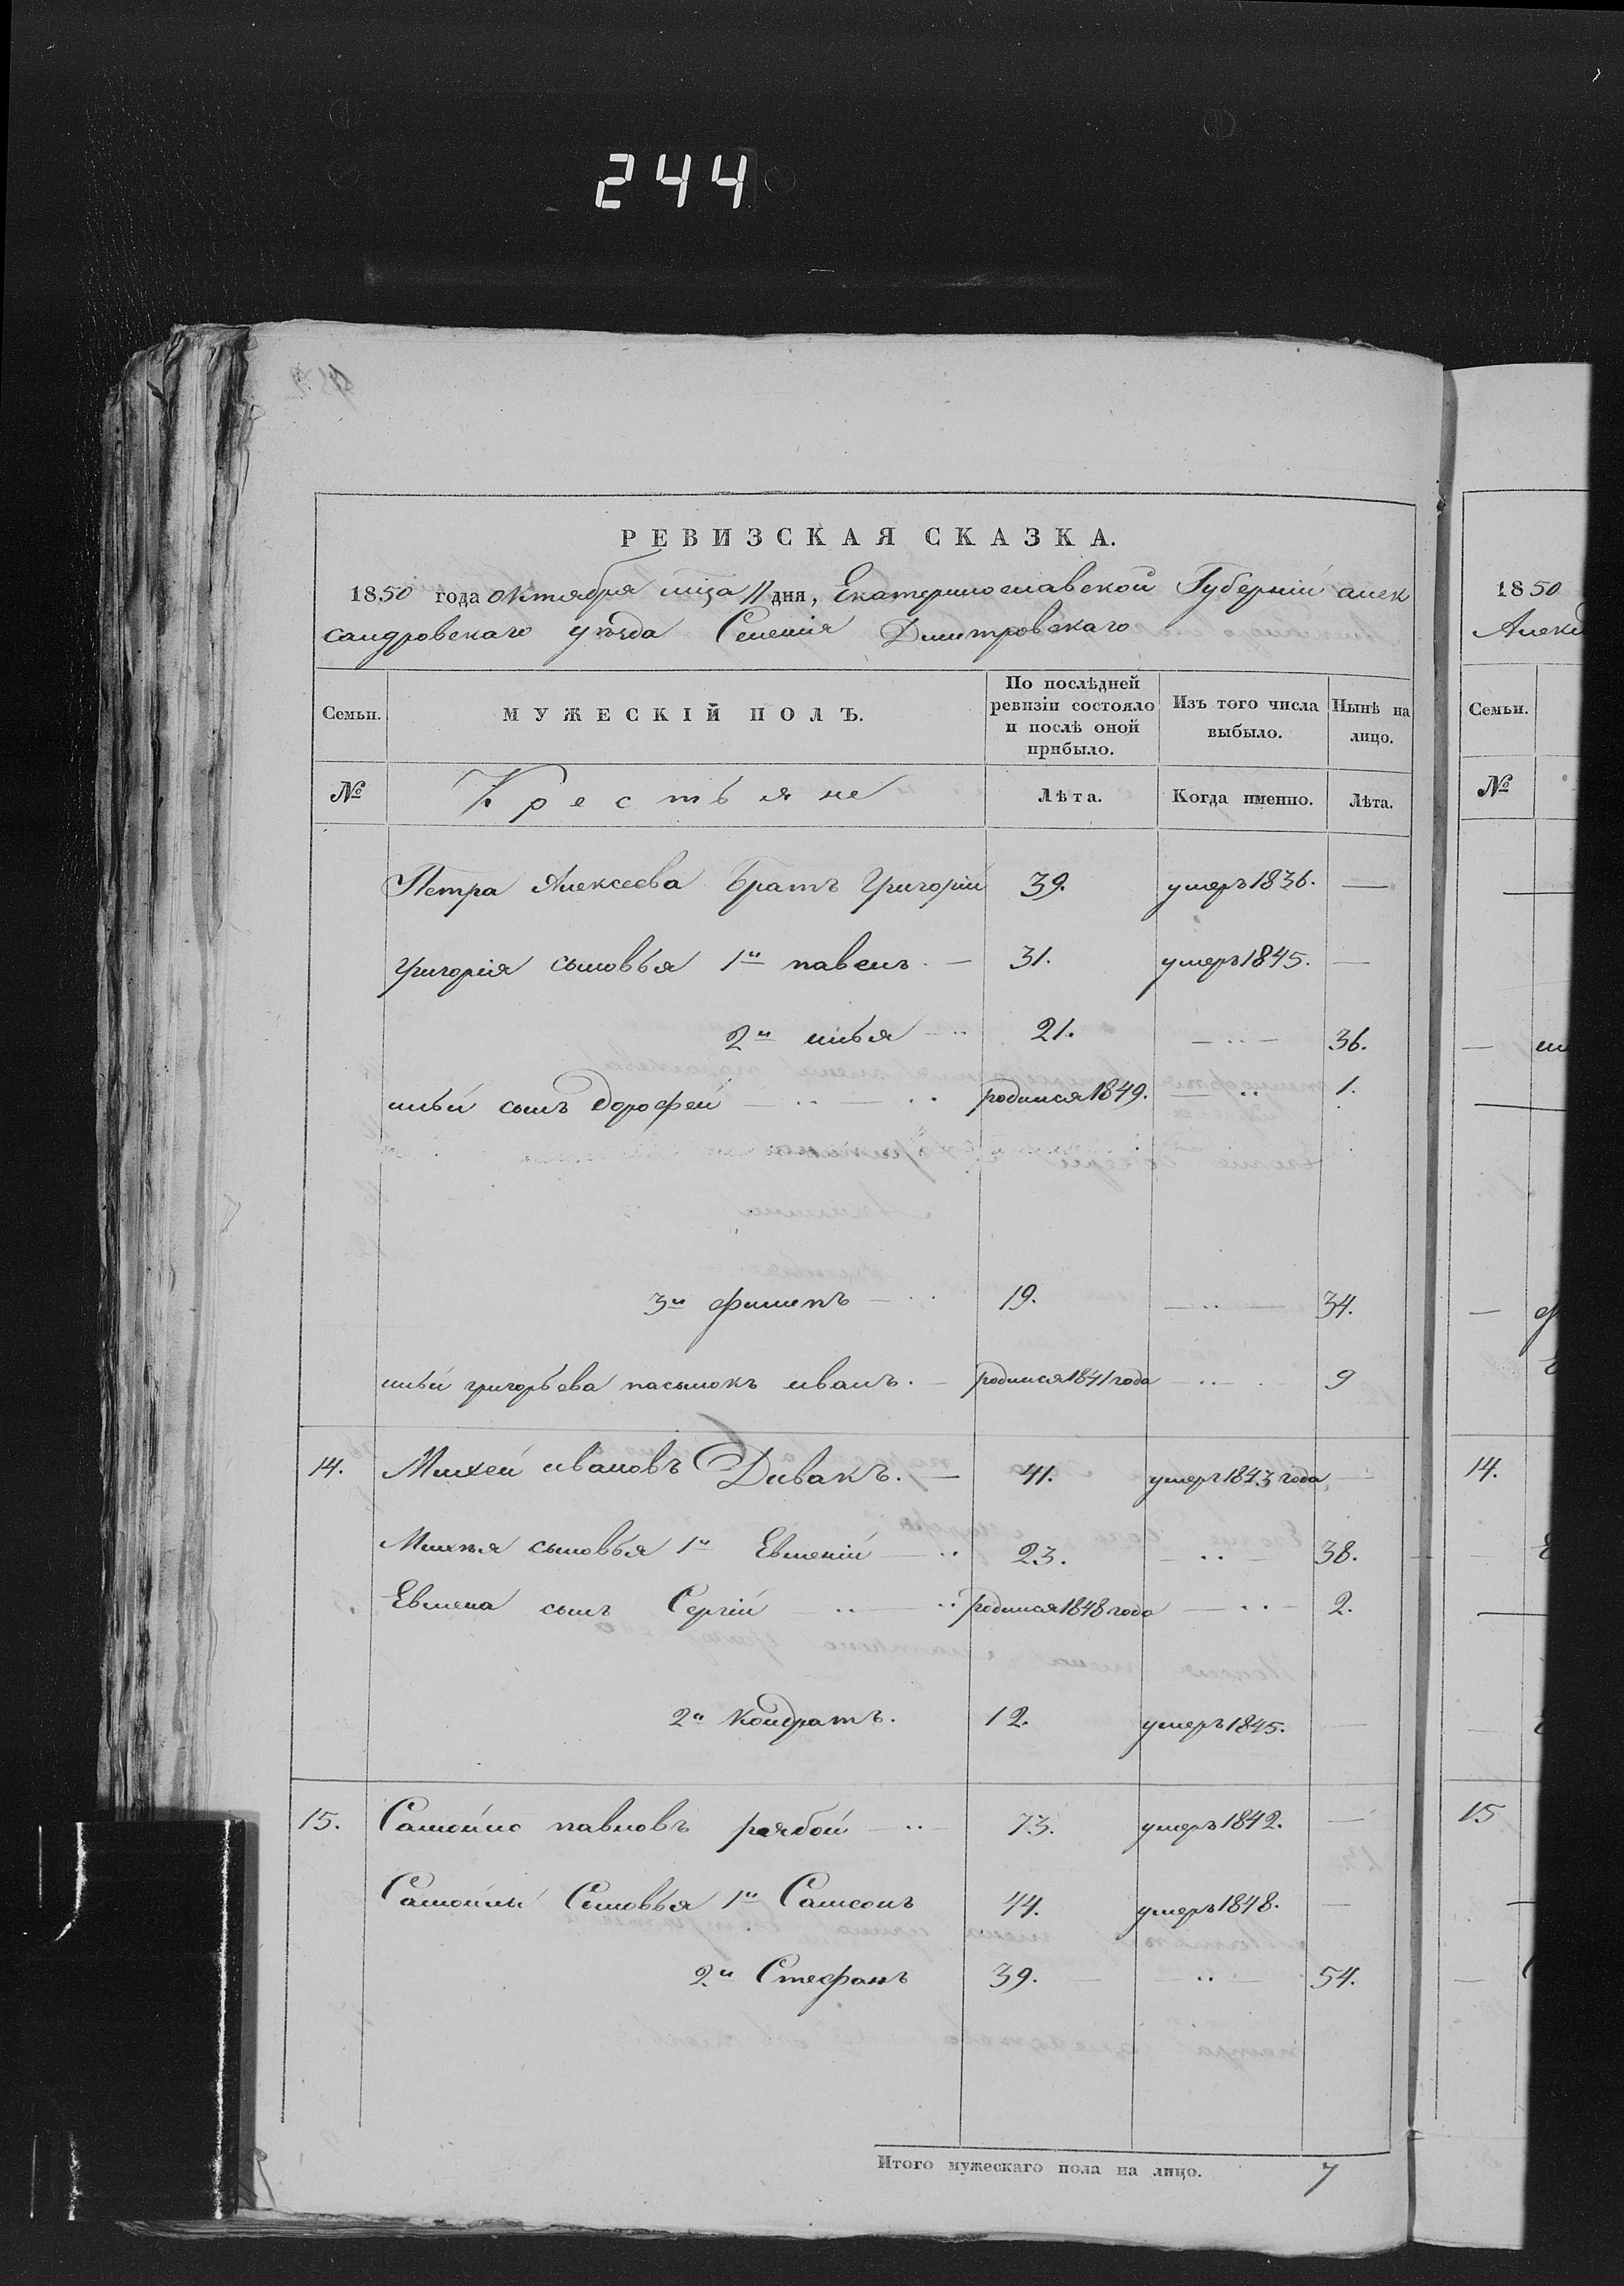 244
РЕВИЗСКАЯ СКАЗКА.
1850 года октября мца 11 дня, Екатеринославской Губерніи алек
сандровскаго уѣзда Селенія Дмитровскаго
Семьи. МУЖЕСКІЙ ПОЛЪ. По послѣдней ревизіи состояло и послѣ оной прибыло. Изъ того числа выбыло. Нынѣ на лицо.
№ Крестьяне Лѣта. Когда именно. Лѣта.
Петра Алексеева Братъ Григорій 39. умеръ 1836. —
григорія сыновья 1й павелъ. — 31. умеръ 1845. —
2й илья — 21. — 36.
ильи сынъ Дорофей — родился 1849. — 1.
3й филипъ — 19. — 34.
ильи григорьева пасынокъ иванъ. — родился 1841 года — 9
14. Михей ивановъ Дивакъ. — 41. умеръ 1843 года —
Михея сыновья 1й Евменій — 23. — 38.
Евмена сынъ Сергій — родился 1848 года — 2.
2й Кондратъ. 12. умеръ 1845. —
15. Самойло павловъ рябой — 73. умеръ 1842. —
Самойлы Сыновья 1й Самсонъ 44. умеръ 1848. —
2й Стефанъ 39. — 54.
Итого мужескаго пола на лицо. 7
1850
Алекс
Семьи.
№
14.
15